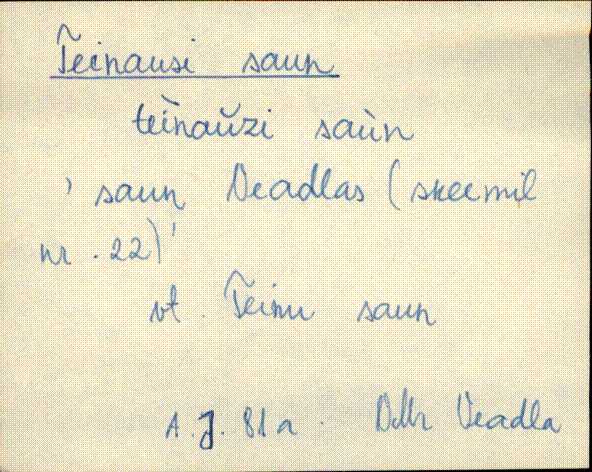 Teinausi saun
tèinaŭzi saùn
' saun Deadlas (skeemil
nr. 22)'
vt. Teinu saun
A. J. 81 a.